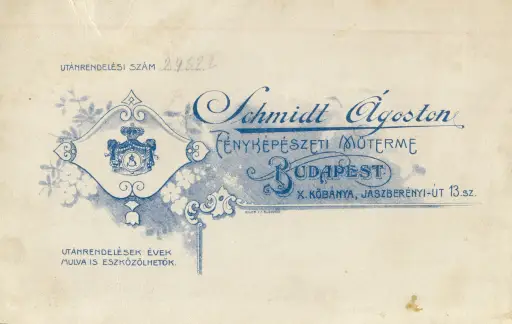 UTÁNRENDELÉSI SZÁM
Schmidt Ágoston
FÉNYKÉPÉSZETI MŰTERME
BUDAPEST
X. KŐBÁNYA, JÁSZBERÉNYI-ÚT 13. SZ.
UTÁNRENDELÉSEK ÉVEK
MULVA IS ESZKÖZÖLHETŐK.